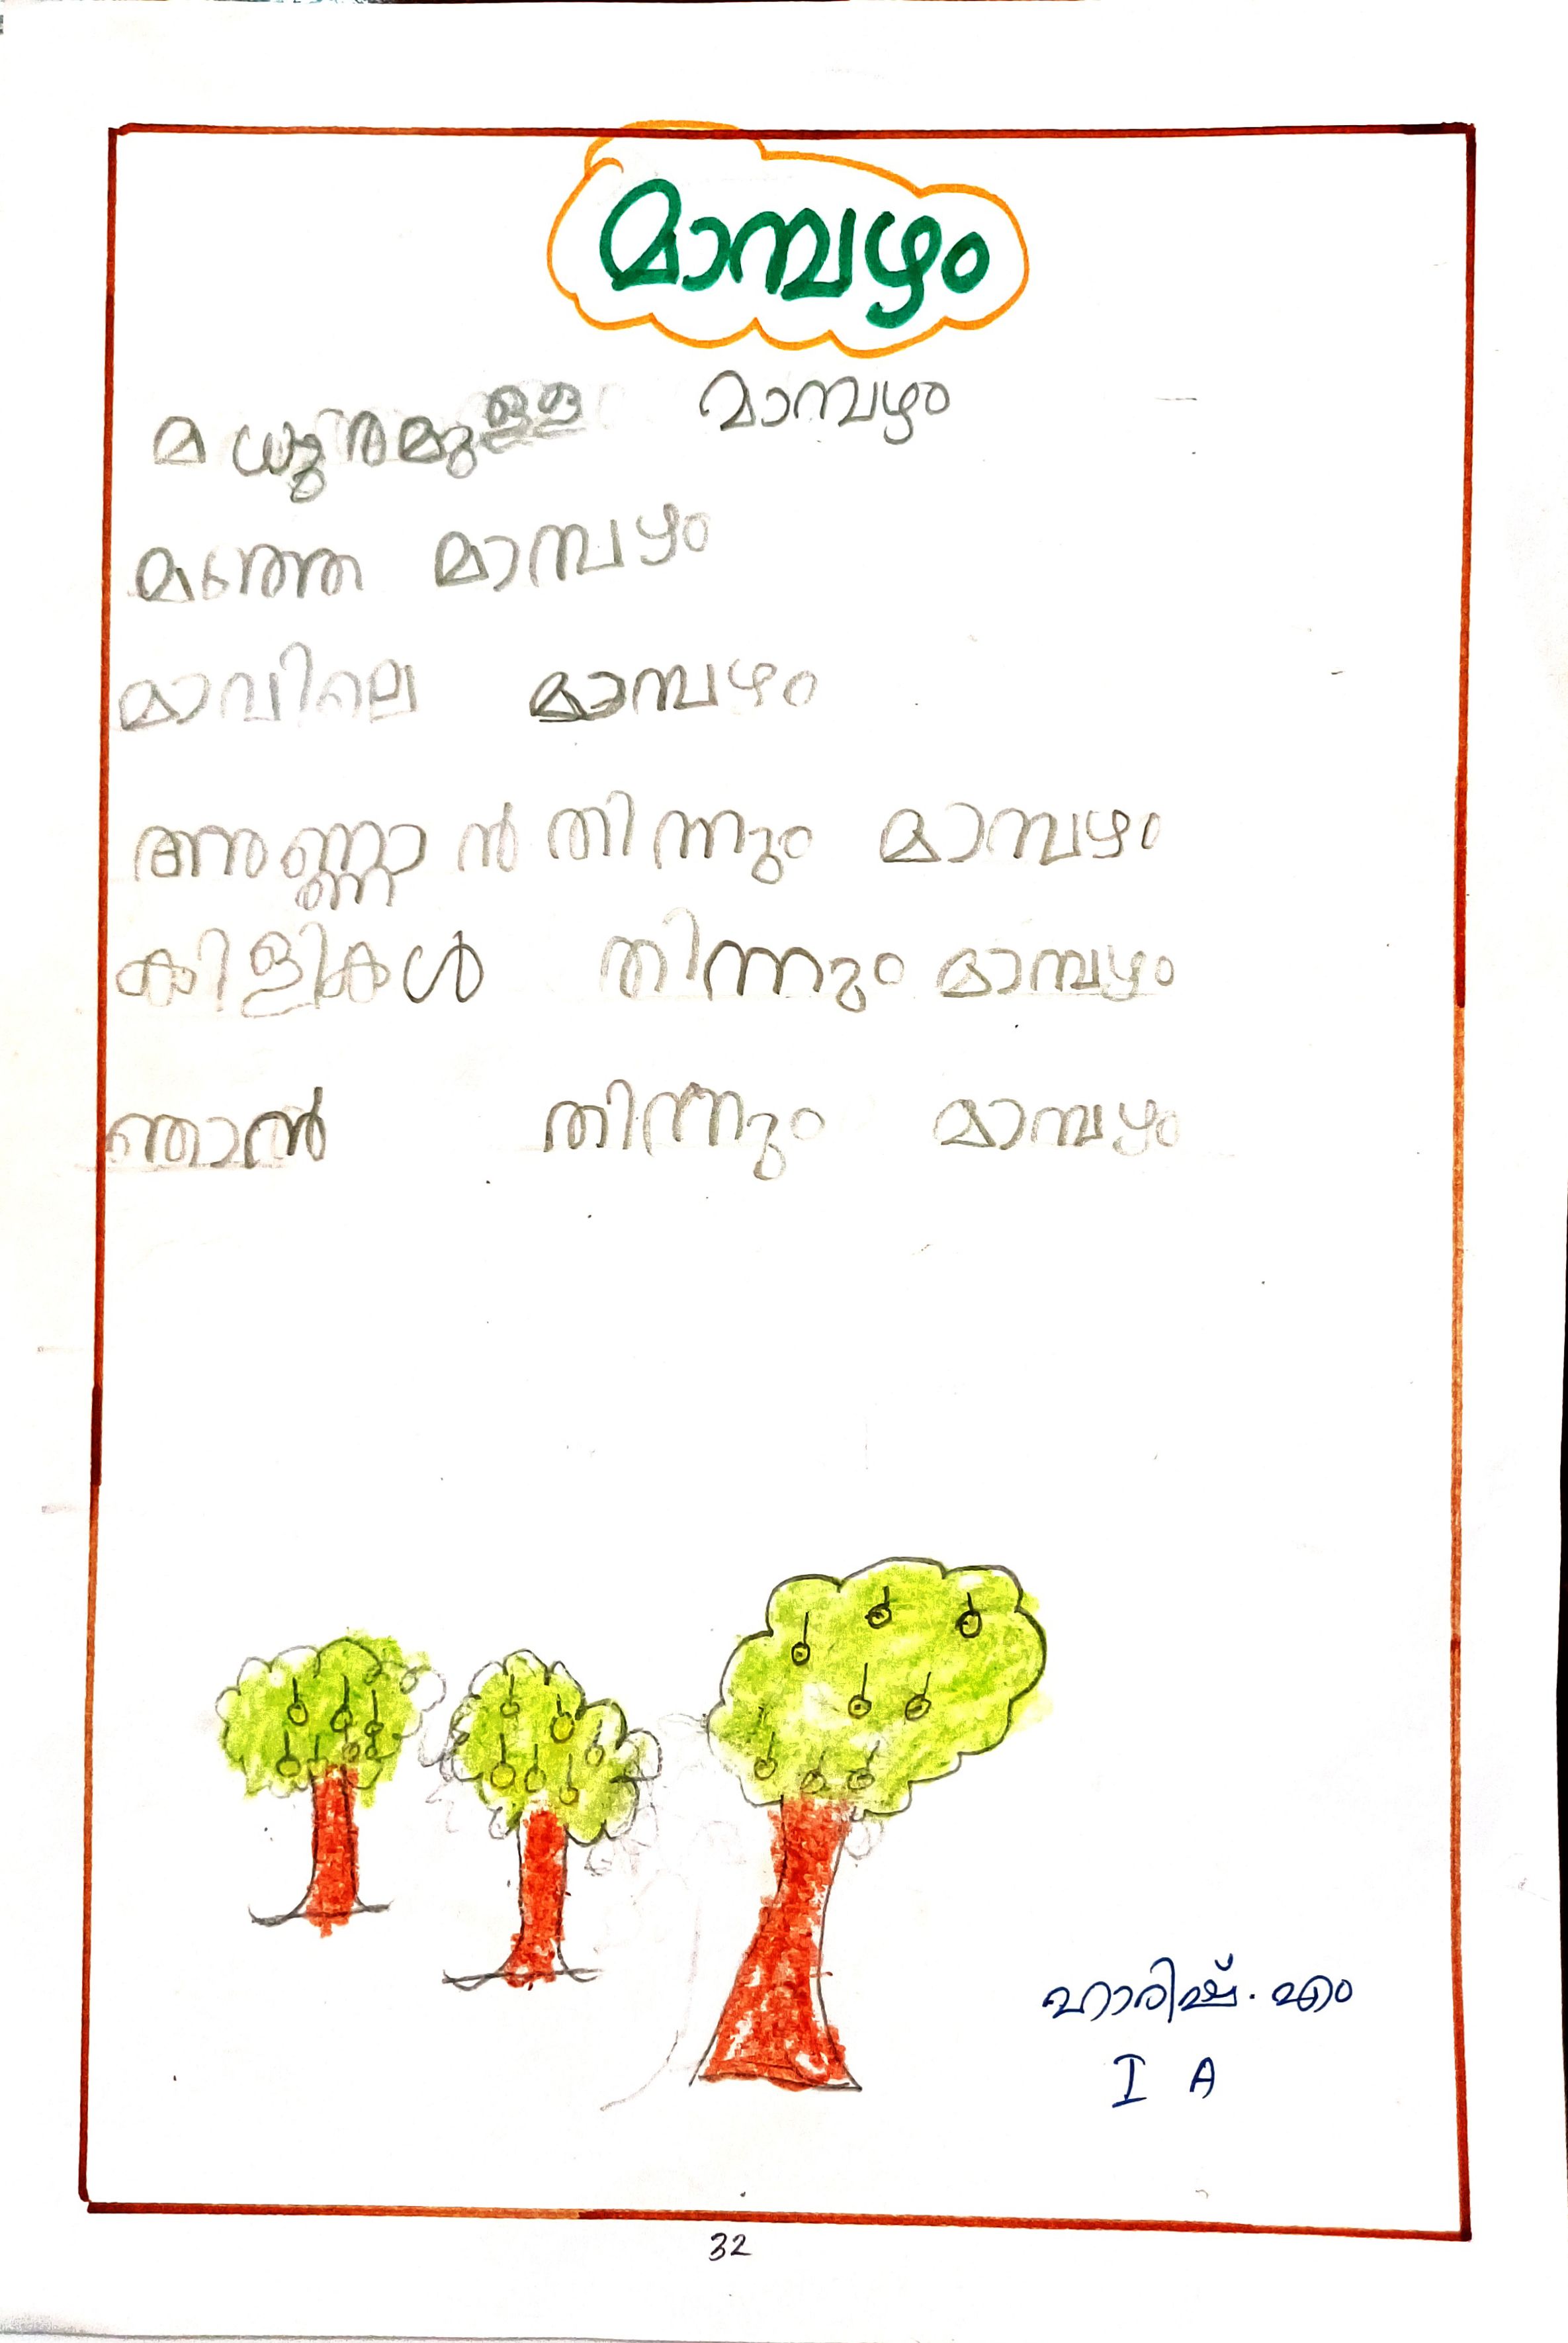 മാമ്പഴം
മധുരമുള്ള മാമ്പഴം
മഞ്ഞ മാമ്പഴം
മാവിലെ മാമ്പഴം
അണ്ണാൻ തിന്നും മാമ്പഴം
കിളികൾ തിന്നും മാമ്പഴം
ഞാൻ തിന്നും മാമ്പഴം
ഹാരിഷ്. എം
I A
32